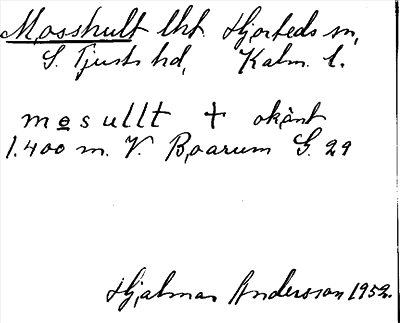 Mosshult lht. Hjorteds sn,
S. Tjusts hd, Kalm. l.
mosullt + okänt
1.400 m. V. Boarum G. 29
Hjalmar Andersson 1952.